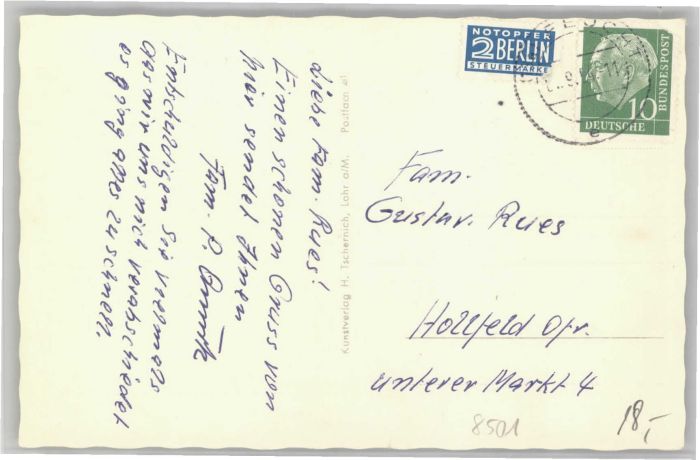 Liebe Fam. Rues!
Einen schönen Gruss von
hier sendet Ihnen
Fam. P.
Entschuldigen Sie vielmals
das wir uns nich verabschiedet
es ging alles zu schnell.
Kunstverlag H. Tschernich, Lohr a/M. Postfach 21
NOTOPFER
2 BERLIN
STEUERMARKE
DEUTSCHE
BUNDESPOST
10
Fam.
Gustav. Rues
Hollfeld Ofr.
unterer Markt 4
8501
18,-